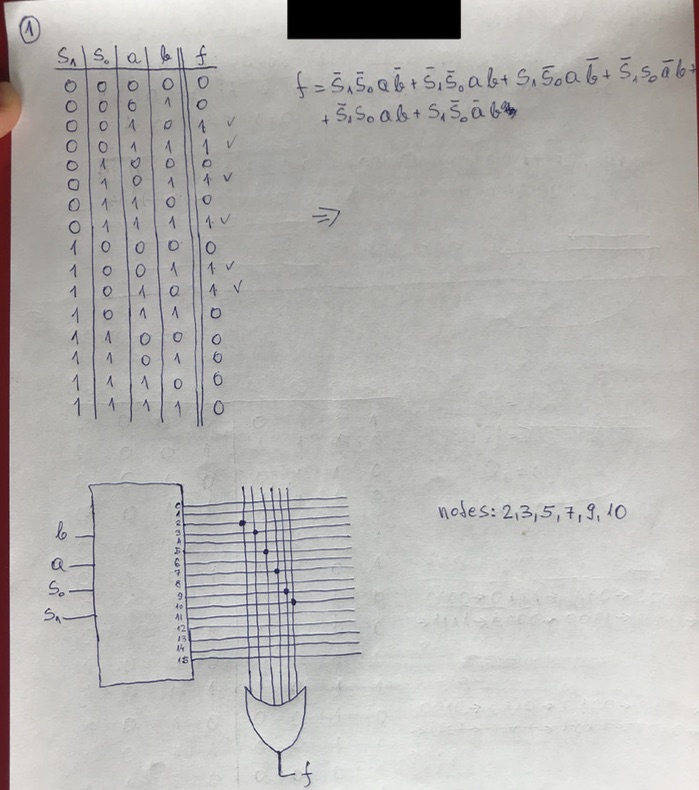 1
S₁ S₀ a b f
0 0 0 0 0
0 0 0 1 0
0 0 1 0 1 ✓
0 0 1 1 1 ✓
0 1 0 0 0
0 1 0 1 1 ✓
0 1 1 0 0
0 1 1 1 1 ✓
1 0 0 0 0
1 0 0 1 1 ✓
1 0 1 0 1 ✓
1 0 1 1 0
1 1 0 0 0
1 1 0 1 0
1 1 1 0 0
1 1 1 1 0
f = S̄₁S̄₀ab̄ + S̄₁S̄₀ab + S₁S̄₀ab̄ + S̄₁S₀āb +
+ S̄₁S₀ab + S₁S̄₀āb
⇒
b
a
S₀
S₁
0
1
2
3
4
5
6
7
8
9
10
11
12
13
14
15
f
notes: 2,3,5,7,9,10